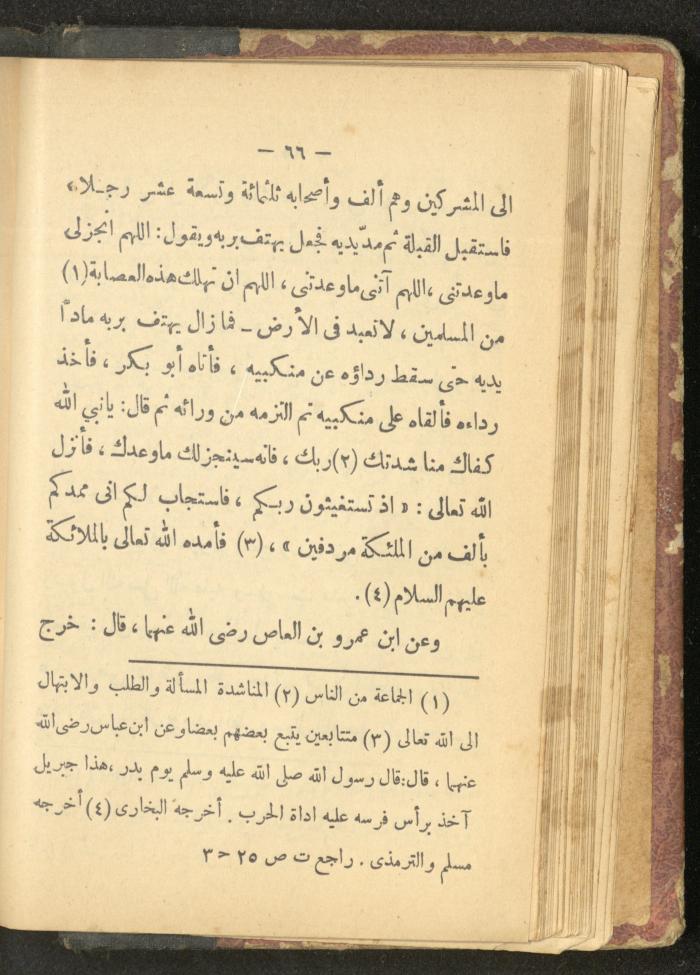 — ٦٦ —
الى المشركين وهم ألف وأصحابه ثلثمائة وتسعة عشر رجلا،
فاستقبل القبلة ثم مدّ يديه فجعل يهتف بربه ويقول : اللهم أنجزلى
ماوعدتنى ، اللهم آتنى ماوعدتنى ، اللهم ان تهلك هذه العصابة (١)
من المسلمين ، لاتعبد فى الأرض ـ فما زال يهتف بربه مادّا
يديه حتى سقط رداؤه عن منكبيه ، فأتاه أبو بكر ، فأخذ
رداءه فألقاه على منكبيه ثم التزمه من ورائه ثم قال : يانبي الله
كفاك مناشدتك (٢) ربك ، فانه سينجزلك ماوعدك ، فأنزل
الله تعالى : « اذ تستغيثون ربكم ، فاستجاب لكم انى ممدكم
بألف من الملئكة مردفين » ، (٣) فأمده الله تعالى بالملائكة
عليهم السلام (٤) .
وعن ابن عمرو بن العاص رضى الله عنهما ، قال : خرج
(١) الجماعة من الناس (٢) المناشدة المسألة والطلب والابتهال
الى الله تعالى (٣) متتابعين يتبع بعضهم بعضا وعن ابن عباس رضى الله
عنهما ، قال : قال رسول الله صلى الله عليه وسلم يوم بدر ، هذا جبريل
آخذ برأس فرسه عليه اداة الحرب . أخرجه البخارى (٤) أخرجه
مسلم والترمذى . راجع ت ص ٢٥ ح ٣